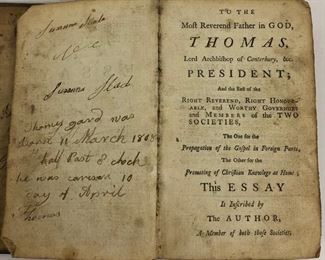 Susanna Slade
Susanna Slad
Thomas gard was
Born 11 March 1808
half Past 8 clock
he was carwen 10
day of April
Thomas
TO THE
Most Reverend Father in GOD,
THOMAS,
Lord Archbishop of Canterbury, &c.
PRESIDENT;
And the Rest of the
RIGHT REVEREND, RIGHT HONOUR-
ABLE, and WORTHY GOVERNORS
and MEMBERS of the TWO
SOCIETIES,
The One for the
Propagation of the Gospel in Foreign Parts,
The Other for the
Promoting of Christian Knowlege at Home;
This ESSAY
Is Inscribed by
The AUTHOR,
A Member of both those Societies.